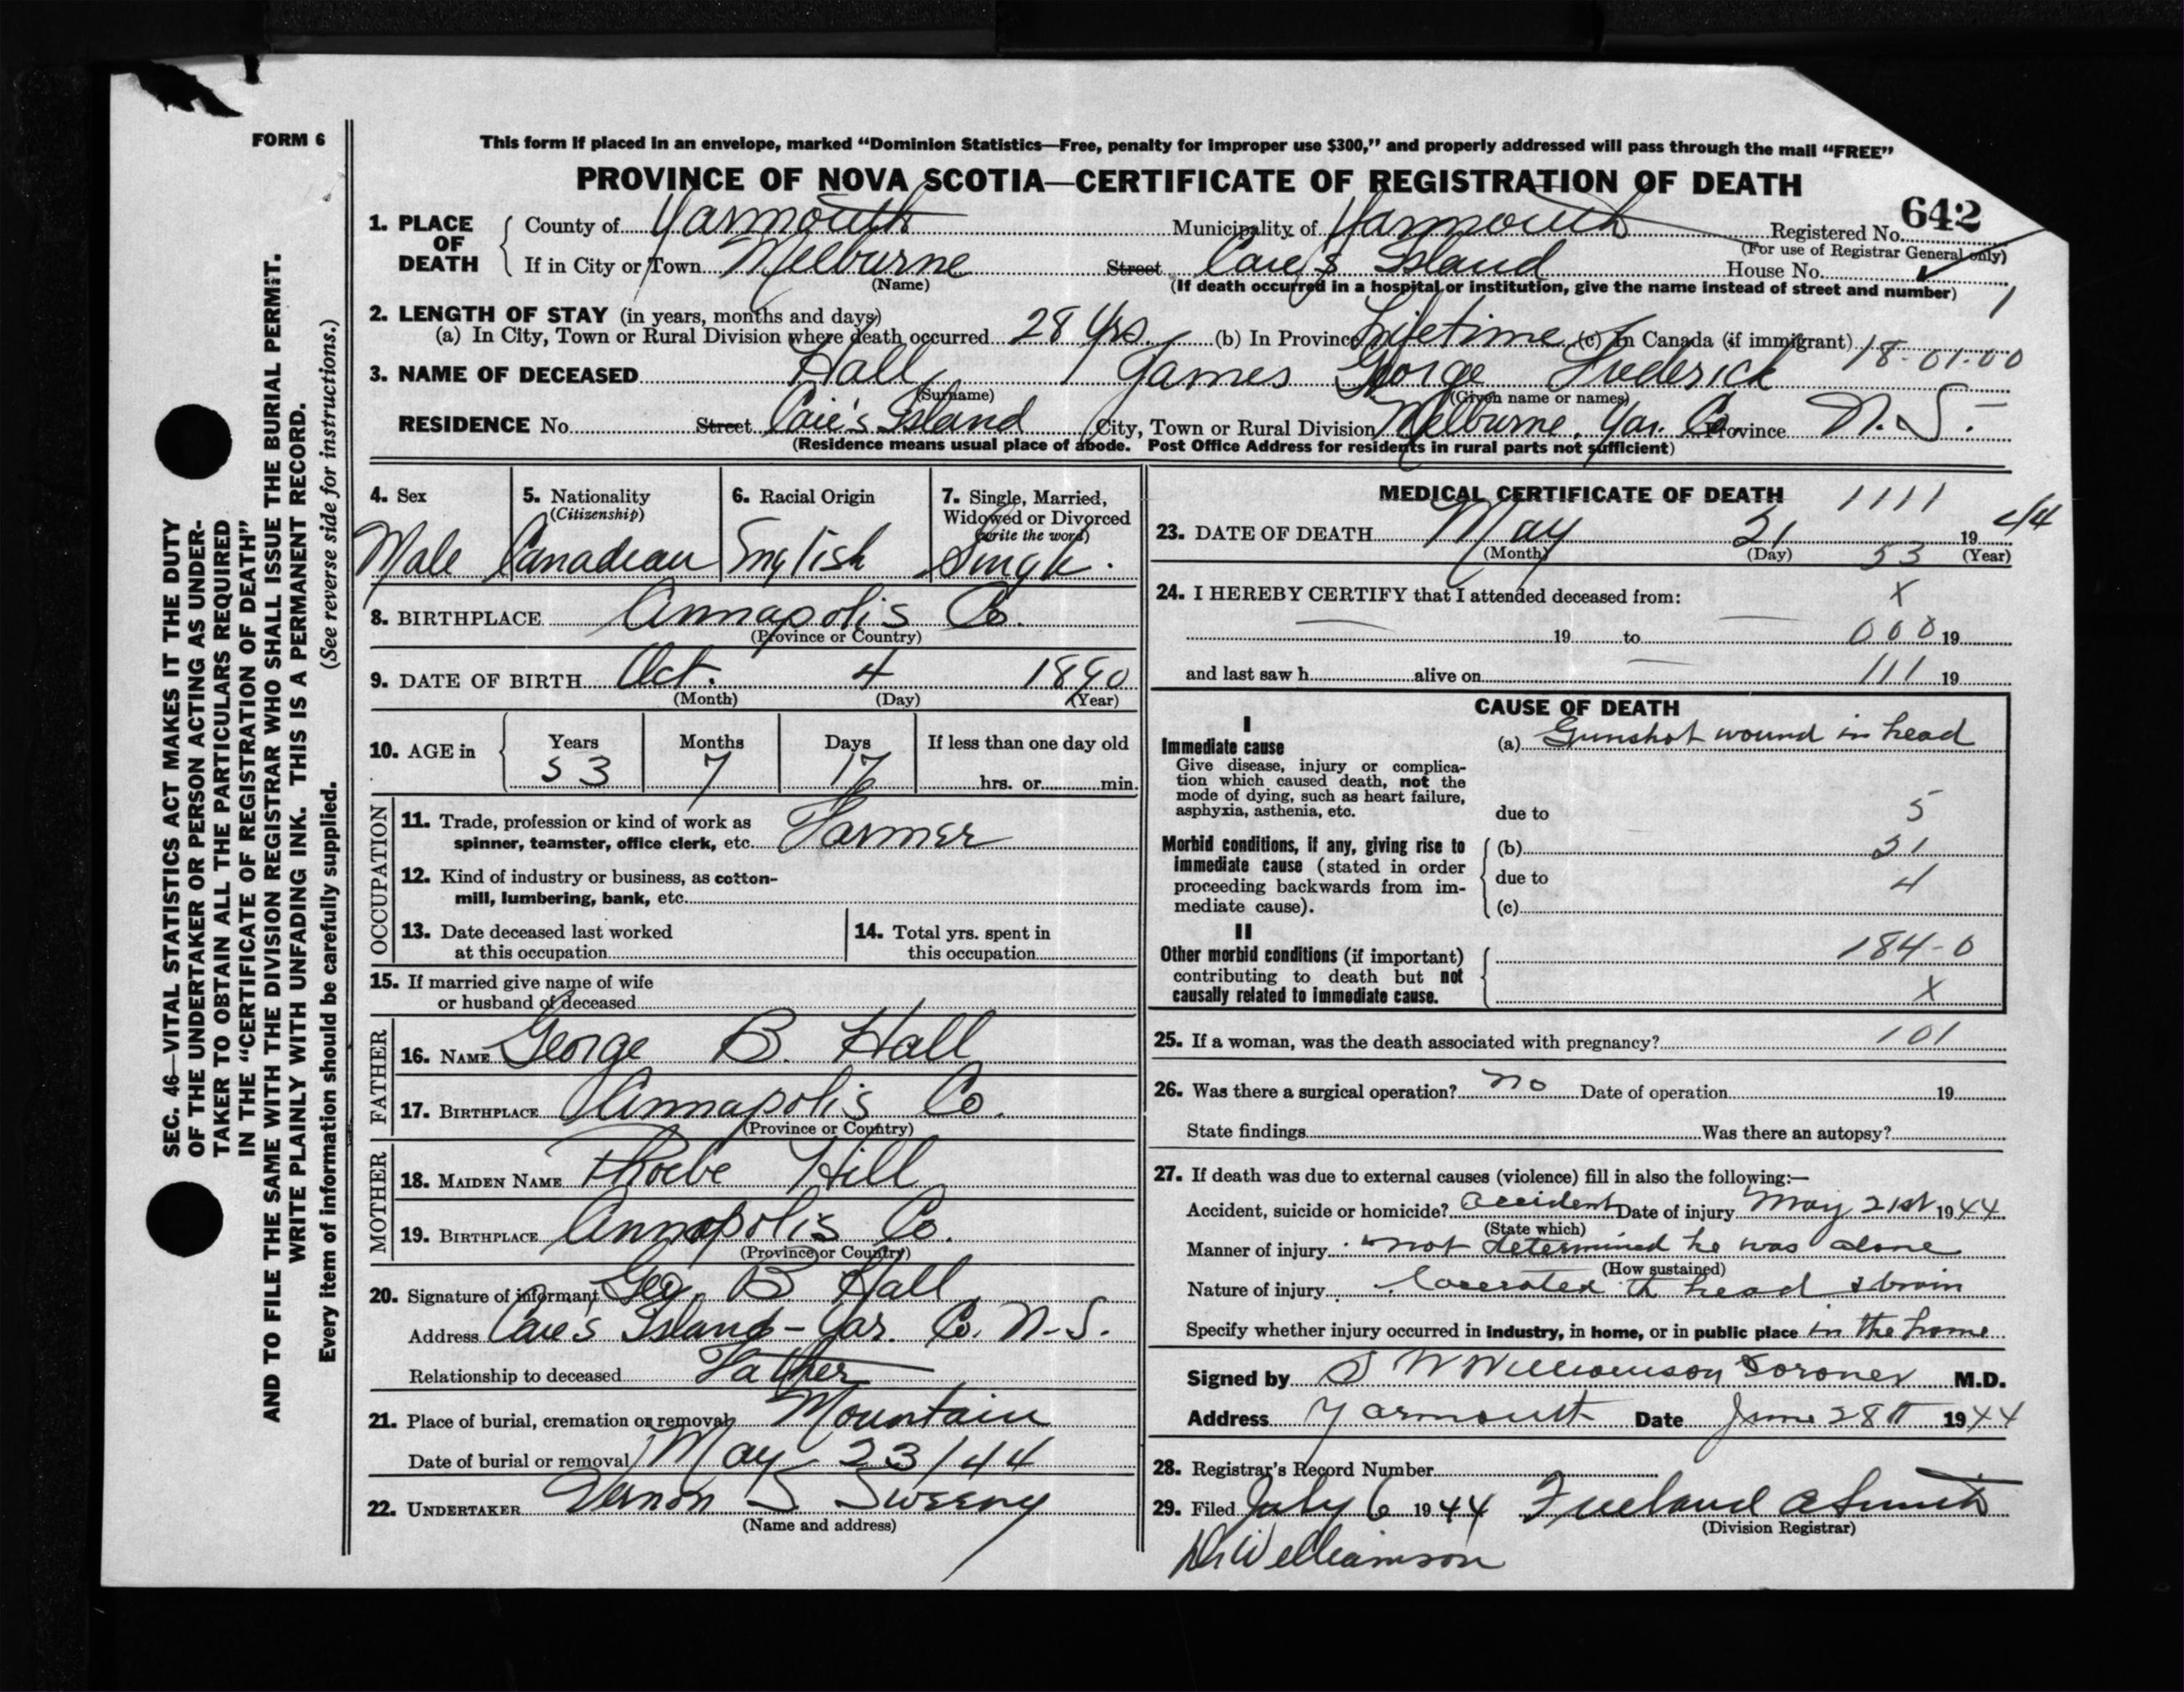 FORM 6
This form if placed in an envelope, marked “Dominion Statistics—Free, penalty for improper use $300,” and properly addressed will pass through the mail “FREE”
PROVINCE OF NOVA SCOTIA—CERTIFICATE OF REGISTRATION OF DEATH
642
1. PLACE OF DEATH County of Yarmouth Municipality of Yarmouth Registered No.
(For use of Registrar General only)
If in City or Town Melburne Street Caie's Island House No.
(Name) (If death occurred in a hospital or institution, give the name instead of street and number) 1
2. LENGTH OF STAY (in years, months and days)
(a) In City, Town or Rural Division where death occurred 28 Yrs. (b) In Province Lifetime (c) In Canada (if immigrant) 18-01-00
3. NAME OF DECEASED Hall, James George Frederick
(Surname) (Given name or names)
RESIDENCE No. Street Caie's Island City, Town or Rural Division Melburne, Yar. Co. Province N.S.
(Residence means usual place of abode. Post Office Address for residents in rural parts not sufficient)
4. Sex Male
5. Nationality (Citizenship) Canadean
6. Racial Origin English
7. Single, Married, Widowed or Divorced (write the word) Single.
8. BIRTHPLACE Annapolis Co.
(Province or Country)
9. DATE OF BIRTH Oct. 4 1890
(Month) (Day) (Year)
10. AGE in Years 53 Months 7 Days 17 If less than one day old
hrs. or min.
OCCUPATION
11. Trade, profession or kind of work as
spinner, teamster, office clerk, etc. Farmer
12. Kind of industry or business, as cotton-
mill, lumbering, bank, etc.
13. Date deceased last worked
at this occupation
14. Total yrs. spent in
this occupation
15. If married give name of wife
or husband of deceased
FATHER
16. NAME George B. Hall
17. BIRTHPLACE Annapolis Co.
(Province or Country)
MOTHER
18. MAIDEN NAME Phoebe Hill
19. BIRTHPLACE Annapolis Co.
(Province or Country)
20. Signature of informant Geo. B. Hall
Address Caie's Island - Yar. Co. N.S.
Relationship to deceased Father
21. Place of burial, cremation or removal Mountain
Date of burial or removal May 23/44
22. UNDERTAKER Vernon S. Sweeny
(Name and address)
MEDICAL CERTIFICATE OF DEATH 1111
23. DATE OF DEATH May 21 19 44
(Month) (Day) 53 (Year)
24. I HEREBY CERTIFY that I attended deceased from: X
19 to 000 19
and last saw h alive on 111 19
CAUSE OF DEATH
I
Immediate cause (a) Gunshot wound in head
Give disease, injury or complica-
tion which caused death, not the
mode of dying, such as heart failure,
asphyxia, asthenia, etc. due to 5
Morbid conditions, if any, giving rise to (b) 21
immediate cause (stated in order due to 4
proceeding backwards from im-
mediate cause). (c)
II
Other morbid conditions (if important) 184-0
contributing to death but not
causally related to immediate cause. X
25. If a woman, was the death associated with pregnancy? 101
26. Was there a surgical operation? no Date of operation 19
State findings Was there an autopsy?
27. If death was due to external causes (violence) fill in also the following:—
Accident, suicide or homicide? Accident Date of injury May 21st 1944
(State which)
Manner of injury not determined he was alone
(How sustained)
Nature of injury Lacerated head & brain
Specify whether injury occurred in industry, in home, or in public place in the home
Signed by S W Williamson Coroner M.D.
Address Yarmouth Date June 28th 1944
28. Registrar's Record Number
29. Filed July 6 1944 Freeland A Smith
(Division Registrar)
Dr Williamson
SEC. 46—VITAL STATISTICS ACT MAKES IT THE DUTY
OF THE UNDERTAKER OR PERSON ACTING AS UNDER-
TAKER TO OBTAIN ALL THE PARTICULARS REQUIRED
IN THE “CERTIFICATE OF REGISTRATION OF DEATH”
AND TO FILE THE SAME WITH THE DIVISION REGISTRAR WHO SHALL ISSUE THE BURIAL PERMIT.
WRITE PLAINLY WITH UNFADING INK. THIS IS A PERMANENT RECORD.
Every item of information should be carefully supplied. (See reverse side for instructions.)